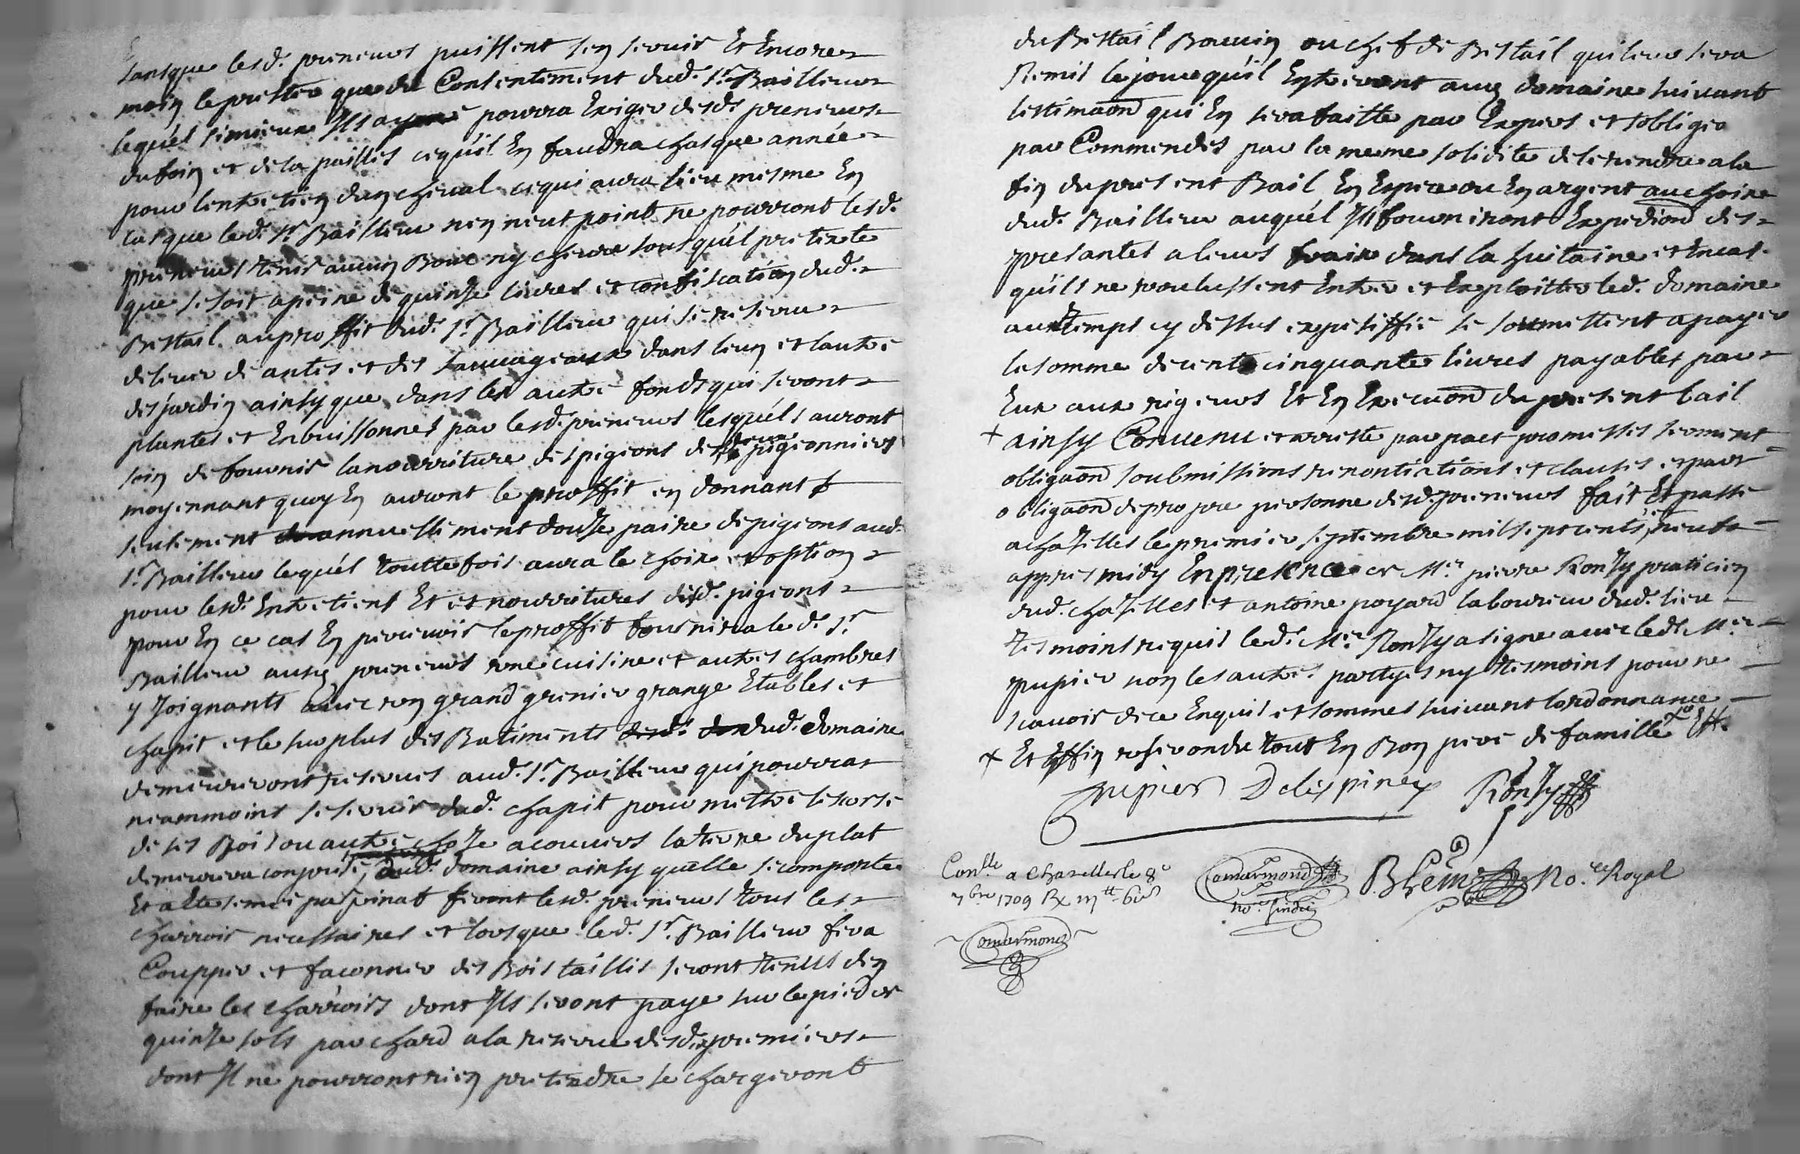 sansque lesd. preneurs puissent sen servir Et Encore
moin le prester que du Consentement dud. Sr. Bailleur
lequel pourra Exiger desds. preneurs
du foin et de la paillies cequil En faudra chasque année
pour lentretien dun cheval cequi aura lieu mesme En
cas que led. Sr. Bailleur nen neut point ne pourront lesd.
preneurs tenir aucun Bouc ny chevre sous quel pretexte
que se soit a peine de quinze livres et confiscation dud.
Bestail au proffit dud. Sr. Bailleur qui se reserve
de lever de antes et des sauvageaux dans leun et lautre
desjardin ainsy que dans les autre fonds qui seront
plantes et Enbuissonnes par lesd. preneurs lesquels auront
soin de fournir la nourriture des pigeons des deux pigeonniers
moyennant quoy En auront le proffit en donnant
seulement annuellement douze paire de pigeons aud.
Sr. Bailleur lequel touttefois aura le choix et option
pour lesd. Entretient Et et nourritures desd. pigeons
pour En ce cas En percevoir le proffit fournira le d. Sr.
Bailleur ausd preneurs une cuisine et autres chambres
y Joignants avec un grand grenier grange Etables et
chapit et le surplus des Batiments dud. domaine
demeureront reserves aud. Sr. Bailleur qui pourra
neammoins se servir dud. chapit pour mettre
de ses Bois ou autre choze a couvers la terre du plat
demeurera conprise aud. domaine ainsy quelle se comporte
Et feront lesd. preneurs tous les
charrois necessaires et lorsque le d. Sr. Bailleur fera
Coupper et faconner des Bois taillis seront tenus den
faire les charrois dont Ils seront paye sur le pied de
quinze sols par chard a la reserve desd. premiers
dont Il ne pourront rien pretendre se chargeront
du Bestail Bouvin ou chef de Bestail qui leur sera
Remis le jour quil Entreront aud domaine suivant
lestimaon qui En sera faitte par Expers et soblige
par Commendes par la meme solidite de le rendre a la
fin du present Bail En Espece ou En argent au choix
dud. Bailleur auquel Ils fourniront Expedion des
presantes a leurs frais dans la huitaine et Encas
quils ne voulussent Entrer et Exploitter led. domaine
au temps cy dessus expesiffié se soumettent a payer
la somme de cent cinquante livres payables par
Eux aux rigeurs Et En Execuon du present bail
+ ainsy Convenu et arreste par pact promesses serment
obligaon soubmissions renontiations et clauses et par
obligaon de propre personne desd. preneurs fait Et passé
a chazelles le premier septembre mil sept cents neuf
appres midy En presence de Mer. pierre Ronzy praticien
dud. chazelles et antoine poyard laboureur dud. lieu
tesmoins requis led. Mer. Ronzy a signe avec led. Mer.
pupier non les autres partyes ny tesmoins pour ne
scavoir de ce Enquis et sommes suivant lordonnance
x Et Effin user du tout En Bon pere de famille
pupier Delespiney Ronzy
Conlle a Chazelles le 8e
7bre 1709 Rx
Comarmond
Comarmond
no. sindic
No.re Royal